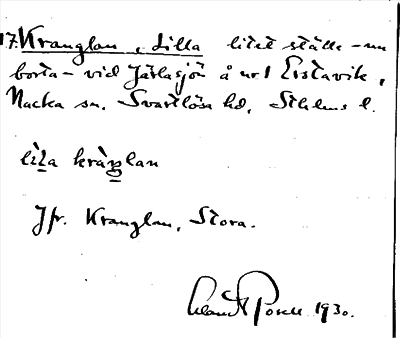 17. Kranglan, Lilla litet ställe - nu
borta - vid Järlasjön å nr 1 Erstavik,
Nacka sn. Svartlösa hd. Sthlms l.
lila kräŋlan
Jfr. Kranglan, Stora.
1930.